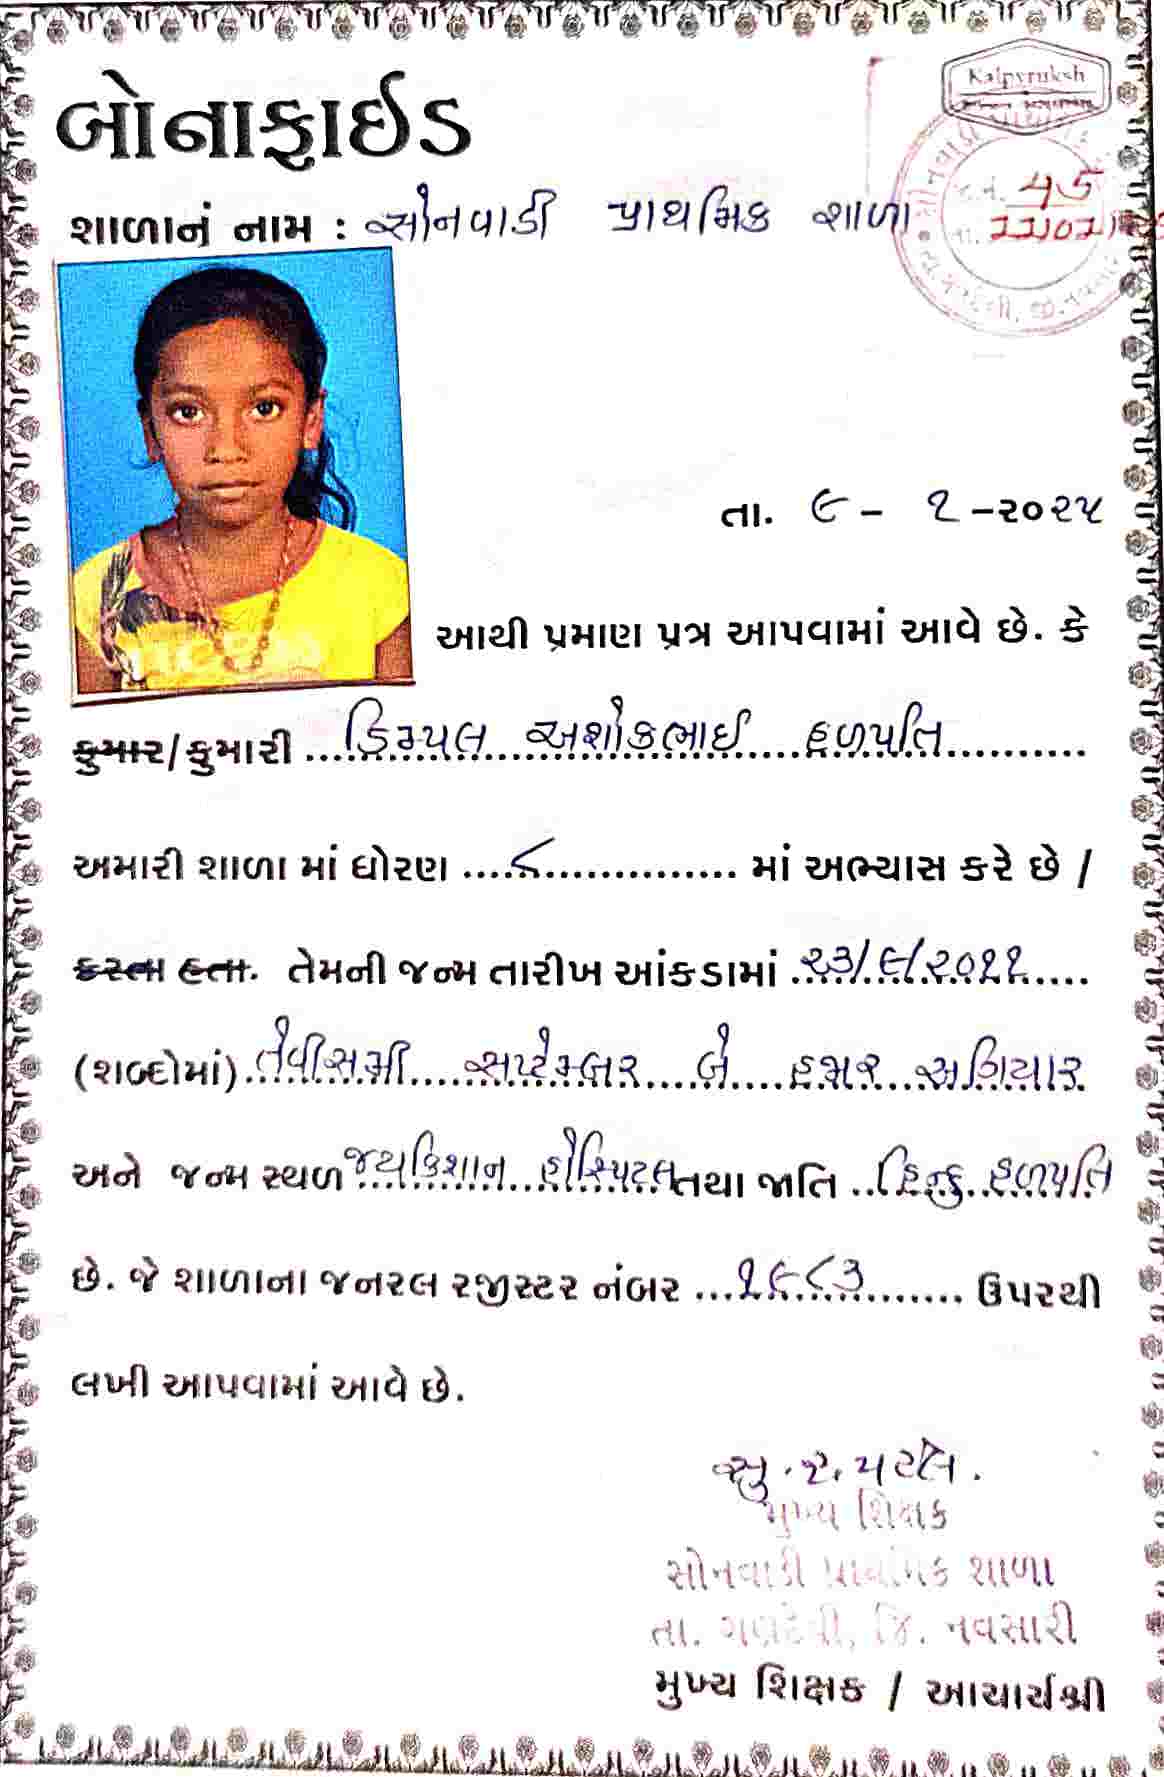 Kalpvruksh
બોનાફાઈડ
શાળાનું નામ : સોનવાડી પ્રાથમિક શાળા
જા.નં. 45
તા. 22/02/
તા. ૯ - ૧ -૨૦૨૫
આથી પ્રમાણ પત્ર આપવામાં આવે છે. કે
કુમાર/કુમારી ડિમ્પલ અશોકભાઈ હળપતિ
અમારી શાળા માં ધોરણ ૮ માં અભ્યાસ કરે છે /
કરતા હતા. તેમની જન્મ તારીખ આંકડામાં ૨૩/૯/૨૦૧૧
(શબ્દોમાં) તેવીસમી સપ્ટેમ્બર બે હજાર અગિયાર
અને જન્મ સ્થળ જયકિશાન હોસ્પિટલ તથા જાતિ હિન્દુ હળપતિ
છે. જે શાળાના જનરલ રજીસ્ટર નંબર ૧૯૮૩ ઉપરથી
લખી આપવામાં આવે છે.
સુ.ર.પટેલ.
મુખ્ય શિક્ષક
સોનવાડી પ્રાથમિક શાળા
તા. ગણદેવી, જિ. નવસારી
મુખ્ય શિક્ષક / આચાર્યશ્રી